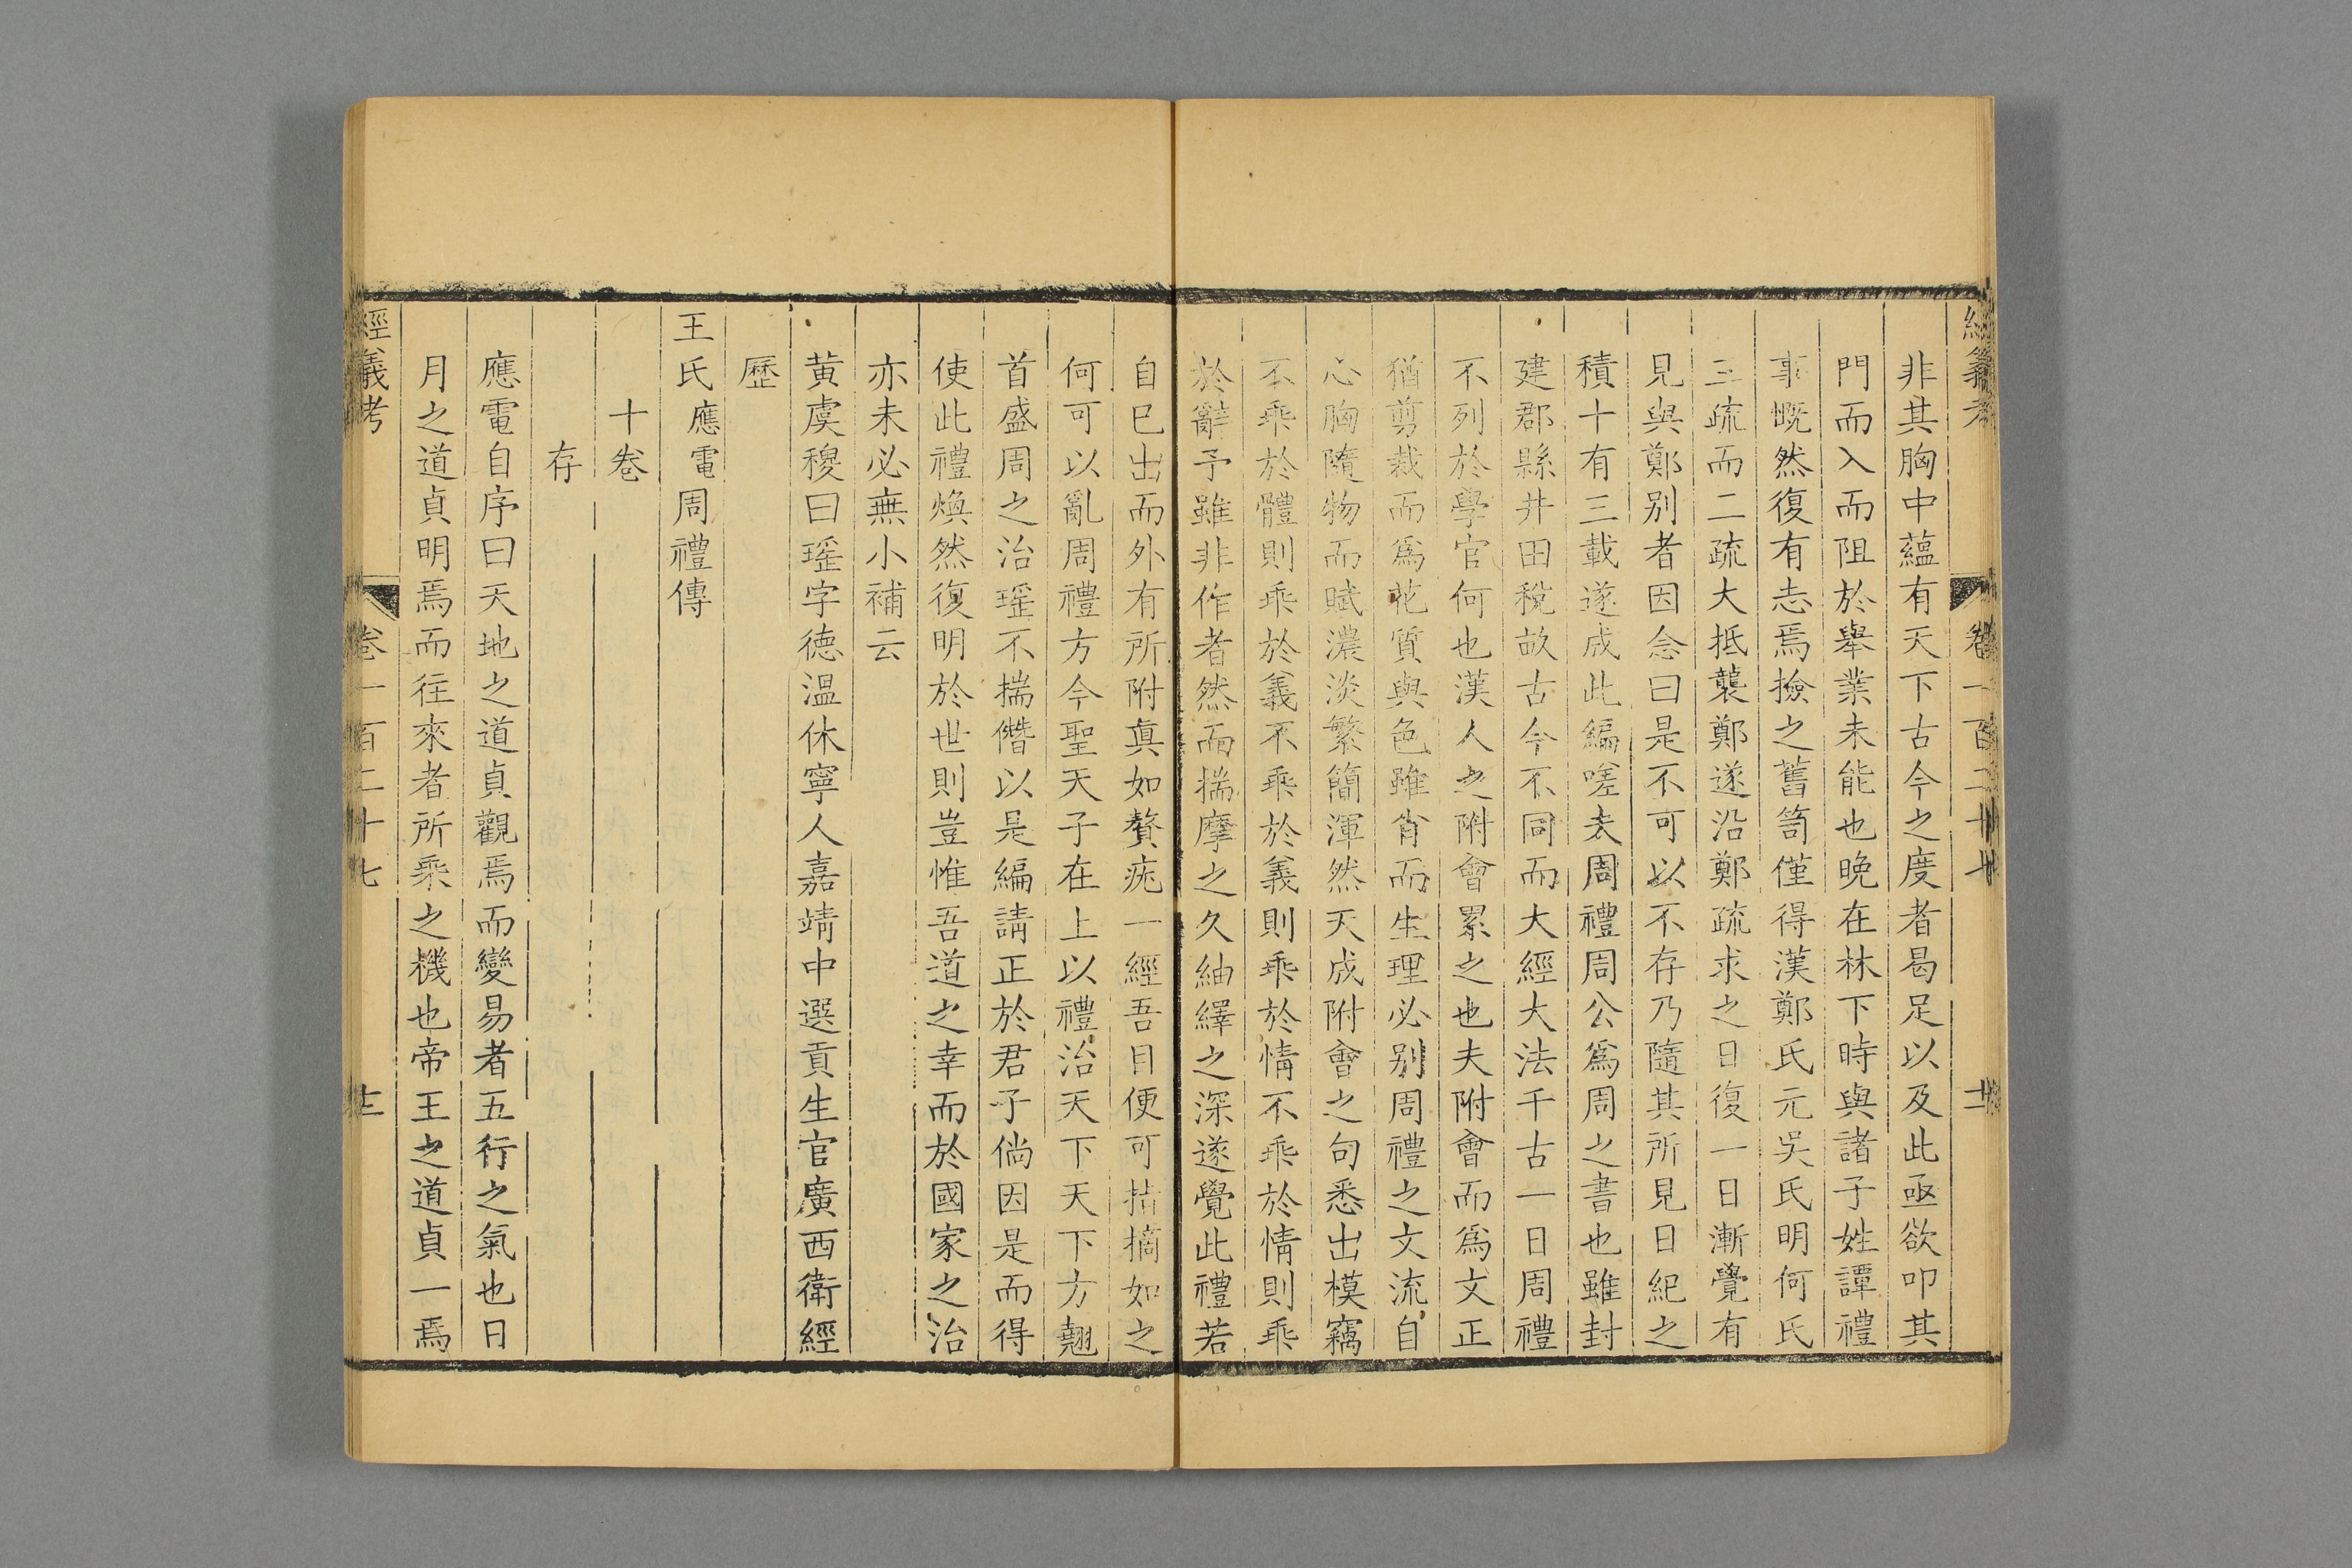 經義考 卷一百二十七 十二
非其胸中蘊有天下古今之度者曷足以及此亟欲叩其
門而入而阻於舉業未能也晚在林下時與諸子姪譚禮
事慨然復有志焉撿之舊笥僅得漢鄭氏元吳氏明何氏
三疏而二疏大抵襲鄭遂沿鄭疏求之日復一日漸覺有
見與鄭别者因念曰是不可以不存乃隨其所見日紀之
積十有三載遂成此編嗟夫周禮周公爲周之書也雖封
建郡縣井田稅畝古今不同而大經大法千古一日周禮
不列於學官何也漢人之附會累之也夫附會而爲文正
猶剪裁而爲花質與色雖肖而生理必别周禮之文流自
心胸隨物而賦濃淡繁簡渾然天成附會之句悉出模竊
不乘於體則乘於義不乘於義則乘於情不乘於情則乘
於辭予雖非作者然而揣摩之久紬繹之深遂覺此禮若
自巳出而外有所附真如贅疣一經吾目便可拈摘如之
何可以亂周禮方今聖天子在上以禮治天下天下方翹
首盛周之治瑤不揣僭以是編請正於君子倘因是而得
使此禮煥然復明於世則豈惟吾道之幸而於國家之治
亦未必無小補云
黄虞稷曰瑤字德温休寧人嘉靖中選貢生官廣西衛經
歷
王氏應電周禮傳
十卷
存
應電自序曰天地之道貞觀焉而變易者五行之氣也日
月之道貞明焉而往來者所乘之機也帝王之道貞一焉
經義考 卷一百二十七 十三